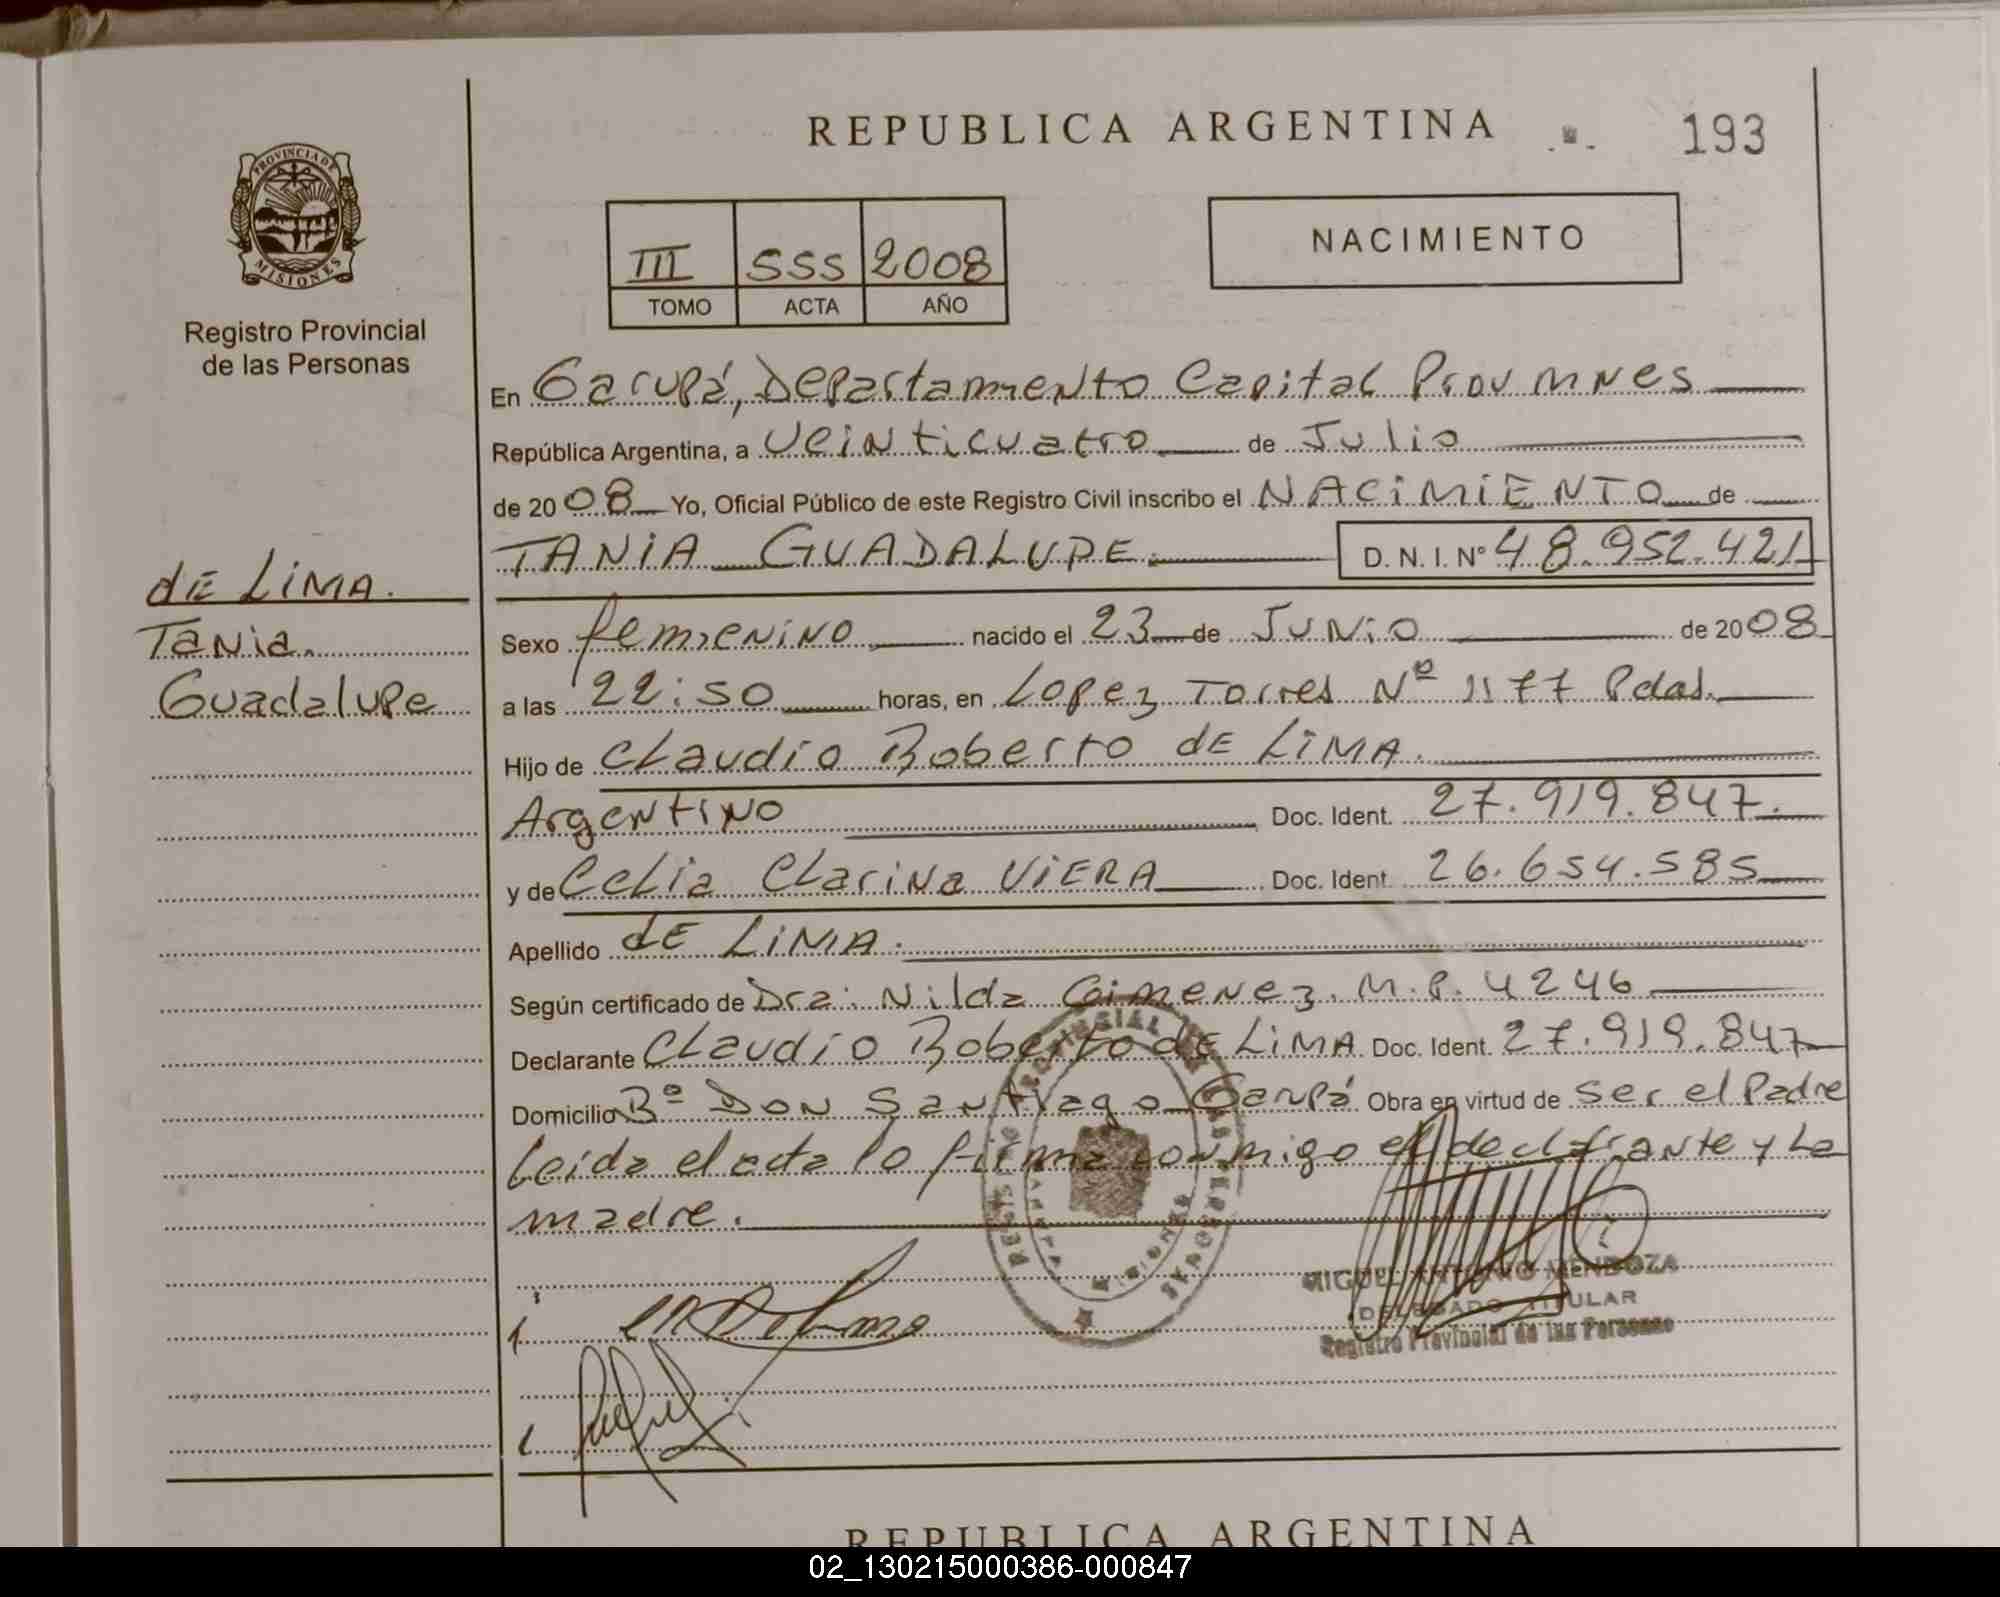 REPUBLICA ARGENTINA
193
PROVINCIA DE
MISIONES
Registro Provincial
de las Personas
III 555 2008
TOMO ACTA AÑO
NACIMIENTO
En Garupá, Departamiento Capital Prov. Mnes
República Argentina, a Veinticuatro de Julio
de 2008 Yo, Oficial Público de este Registro Civil inscribo el NACIMIENTO de
TANIA GUADALUPE. D. N. I. Nº 48.952.421
de LIMA.
Tania.
Guadalupe
Sexo femenino nacido el 23 de Junio de 2008
a las 22:50 horas, en Lopez Torres Nº 1177 Pdas.
Hijo de Claudio Roberto de LIMA.
Argentino Doc. Ident. 27.919.847.
y de Celia Clarina VIERA Doc. Ident. 26.654.585
Apellido de LIMA.
Según certificado de Dra. Nilda Gimenez. M.P. 4246
Declarante Claudio Roberto de LIMA Doc. Ident. 27.919.847
Domicilio Bº Don Santiago Garupá Obra en virtud de ser el Padre
Leida el acta lo firma conmigo el declarante y la
madre.
MIGUEL ANTONIO MENDOZA
DELEGADO TITULAR
Registro Provincial de las Personas
REPUBLICA ARGENTINA
02_130215000386-000847